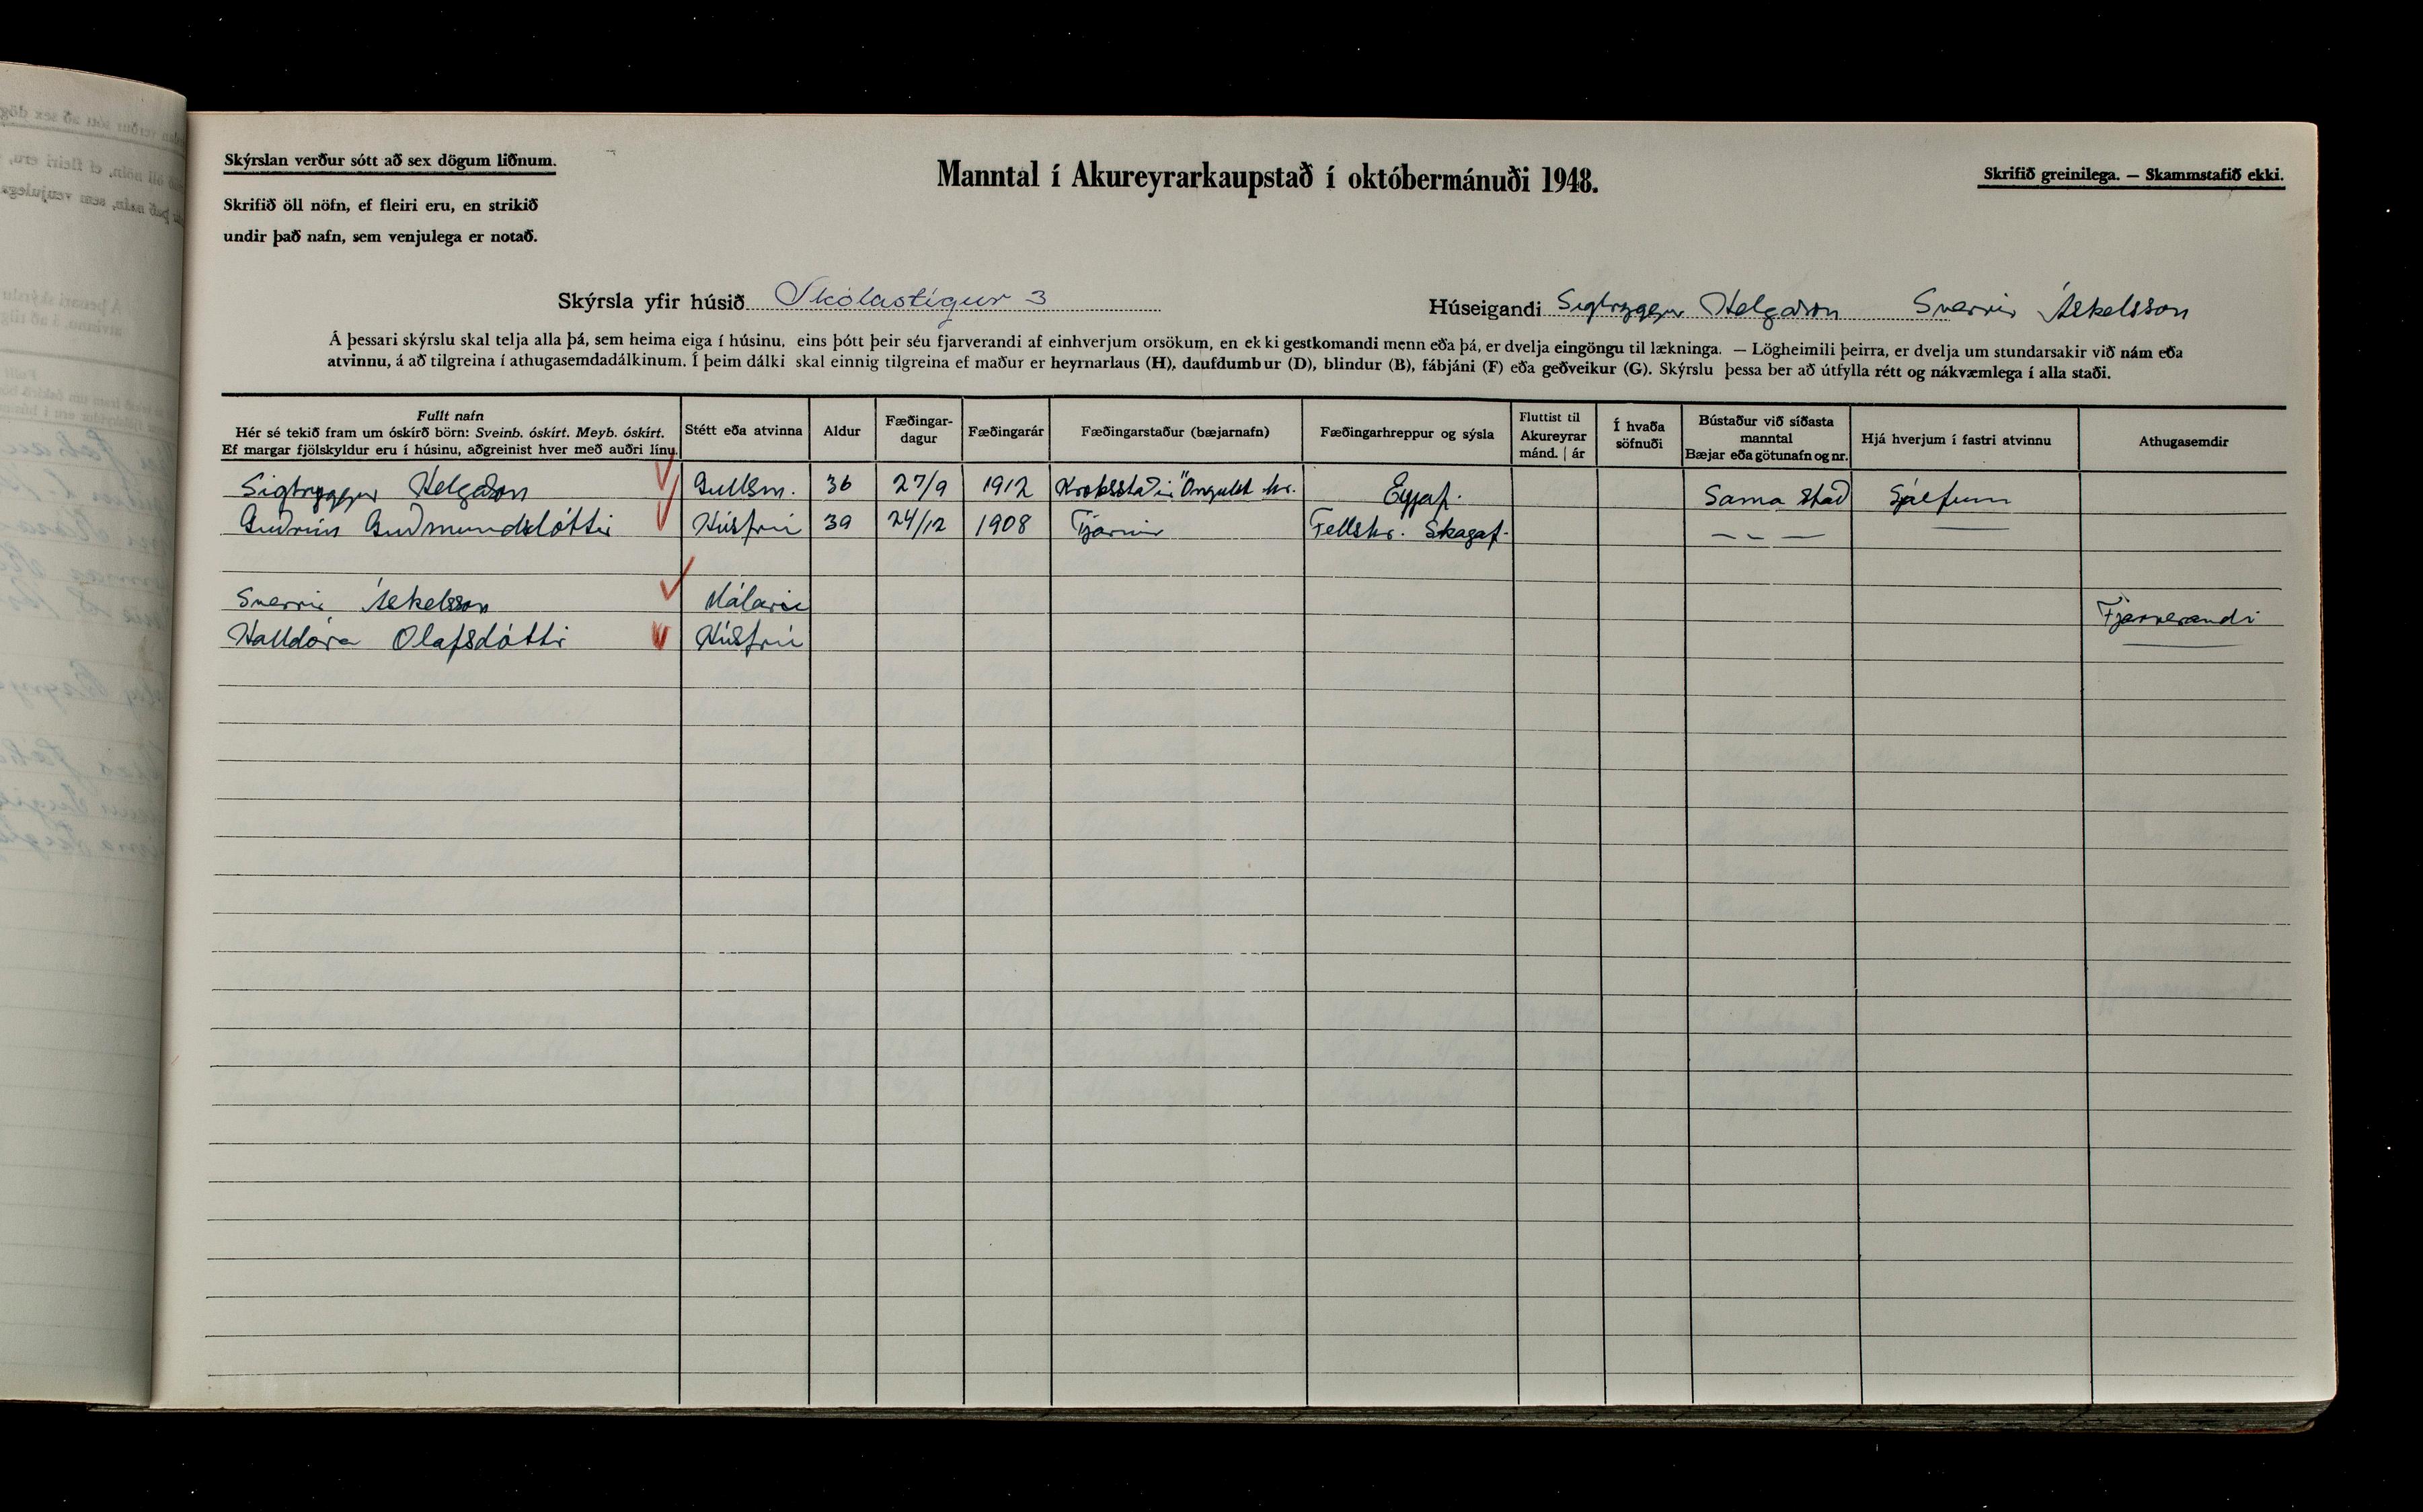 Skýrslan verður sótt að sex dögum liðnum.
Skrifið öll nöfn, ef fleiri eru, en strikið
undir það nafn, sem venjulega er notað.
Manntal í Akureyrarkaupstað í októbermánuði 1948.
Skrifið greinilega. — Skammstafið ekki.
Skýrsla yfir húsið Skólastígur 3
Húseigandi Sigtryggur Helgason Sverrir Áskelsson
Á þessari skýrslu skal telja alla þá, sem heima eiga í húsinu, eins þótt þeir séu fjarverandi af einhverjum orsökum, en ekki gestkomandi menn eða þá, er dvelja eingöngu til lækninga. — Lögheimili þeirra, er dvelja um stundarsakir við nám eða
atvinnu, á að tilgreina í athugasemdadálkinum. Í þeim dálki skal einnig tilgreina ef maður er heyrnarlaus (H), daufdumbur (D), blindur (B), fábjáni (F) eða geðveikur (G). Skýrslu þessa ber að útfylla rétt og nákvæmlega í alla staði.
Fullt nafn
Hér sé tekið fram um óskírð börn: Sveinb. óskírt. Meyb. óskírt.
Ef margar fjölskyldur eru í húsinu, aðgreinist hver með auðri línu.
Stétt eða atvinna
Aldur
Fæðingar-
dagur
Fæðingarár
Fæðingarstaður (bæjarnafn)
Fæðingarhreppur og sýsla
Fluttist til
Akureyrar
mánd. | ár
Í hvaða
söfnuði
Bústaður við síðasta
manntal
Bæjar eða götunafn og nr.
Hjá hverjum í fastri atvinnu
Athugasemdir
Sigtryggur Helgason Gullsm. 36 27/9 1912 Kroksstaðir Öngulst.hr. Eyjaf. Sama stað Sjálfum
Guðrún Guðmundsdóttir Húsfrú 39 24/12 1908 Tjarnir Fellshr. Skagaf. — – —
Sverrir Áskelsson Málari
Halldóra Olafsdóttir Húsfrú Fjarverandi